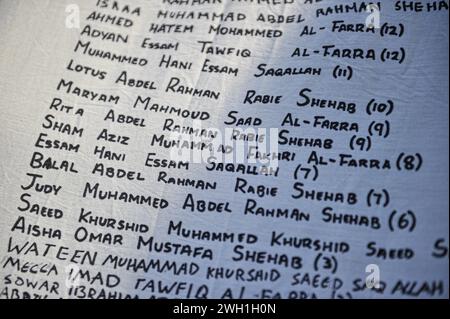 RAHMAN
ISRAA MUHAMMAD ABDEL RAHMAN SHEHA
AHMED HATEM MOHAMMED AL-FARRA (12)
ADYAN ESSAM TAWFIQ AL-FARRA (12)
MUHAMMED HANI ESSAM SAQALLAH (11)
LOTUS ABDEL RAHMAN RABIE SHEHAB (10)
MARYAM MAHMOUD SAAD AL-FARRA (9)
RITA ABDEL RAHMAN RABIE SHEHAB (9)
SHAM AZIZ MUHAMMAD FAKHRI AL-FARRA (8)
ESSAM HANI ESSAM SAQALLAH (7)
BALAL ABDEL RAHMAN RABIE SHEHAB (7)
JUDY MUHAMMED ABDEL RAHMAN SHEHAB (6)
SAEED KHURSHID MUHAMMED KHURSHID SAEED S
AISHA OMAR MUSTAFA SHEHAB (3)
WATEEN MUHAMMAD KHURSHID SAEED SAQALLAH
MECCA IMAD TAWFIQ AL-FARRA
SOWAR IBRAHIM
alamy
Image ID: 2WH1H0N
www.alamy.com